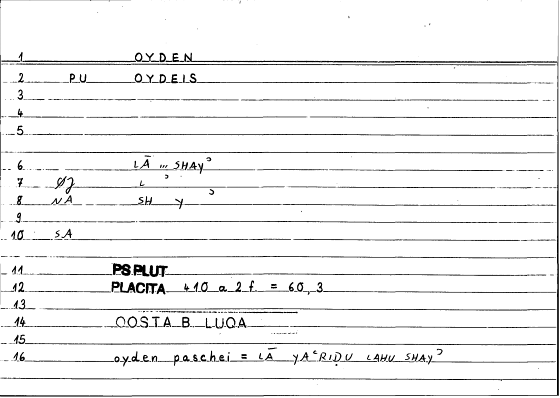 1 OYDEN
2 PU OYDEIS
3
4
5
6 LĀ ... SHAYʾ
7 ØJ L ʾ
8 NA SH Y ʾ
9
10 SA
11 PSPLUT
12 PLACITA 410 a 2 f. = 60, 3
13
14 QOSTA B. LUQA
15
16 oyden paschei = LĀ YAʿRIḌU LAHU SHAYʾ